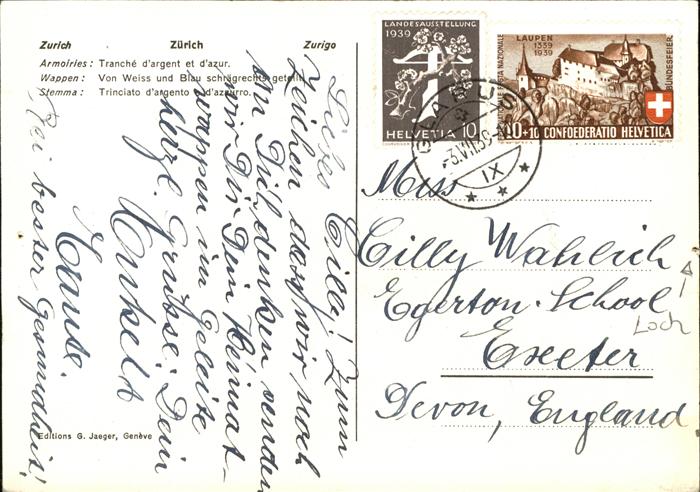 Zurich Zürich Zurigo
Armoiries : Tranché d'argent et d'azur.
Wappen : Von Weiss und Blau schrägrechts geteilt.
Stemma : Trinciato d'argento e d'azzurro.
Liebes Cilli! Zum
Zeichen dass wir noch
an Dich denken senden
wir Dir Dein Heimat-
wappen im Geleite
herzl. Grüsse. Dein
Onkel
Tante
Bei bester Gesundheit!
Editions G. Jaeger, Genève
LANDESAUSSTELLUNG
1939
HELVETIA 10
LAUPEN
1339
1939
BUNDESFEIER
10+10 CONFOEDERATIO HELVETICA
GLARUS
3.VII.39
IX
Miss
Cilly Wahlich
Egerton-School
Loch
Exeter
Devon, England